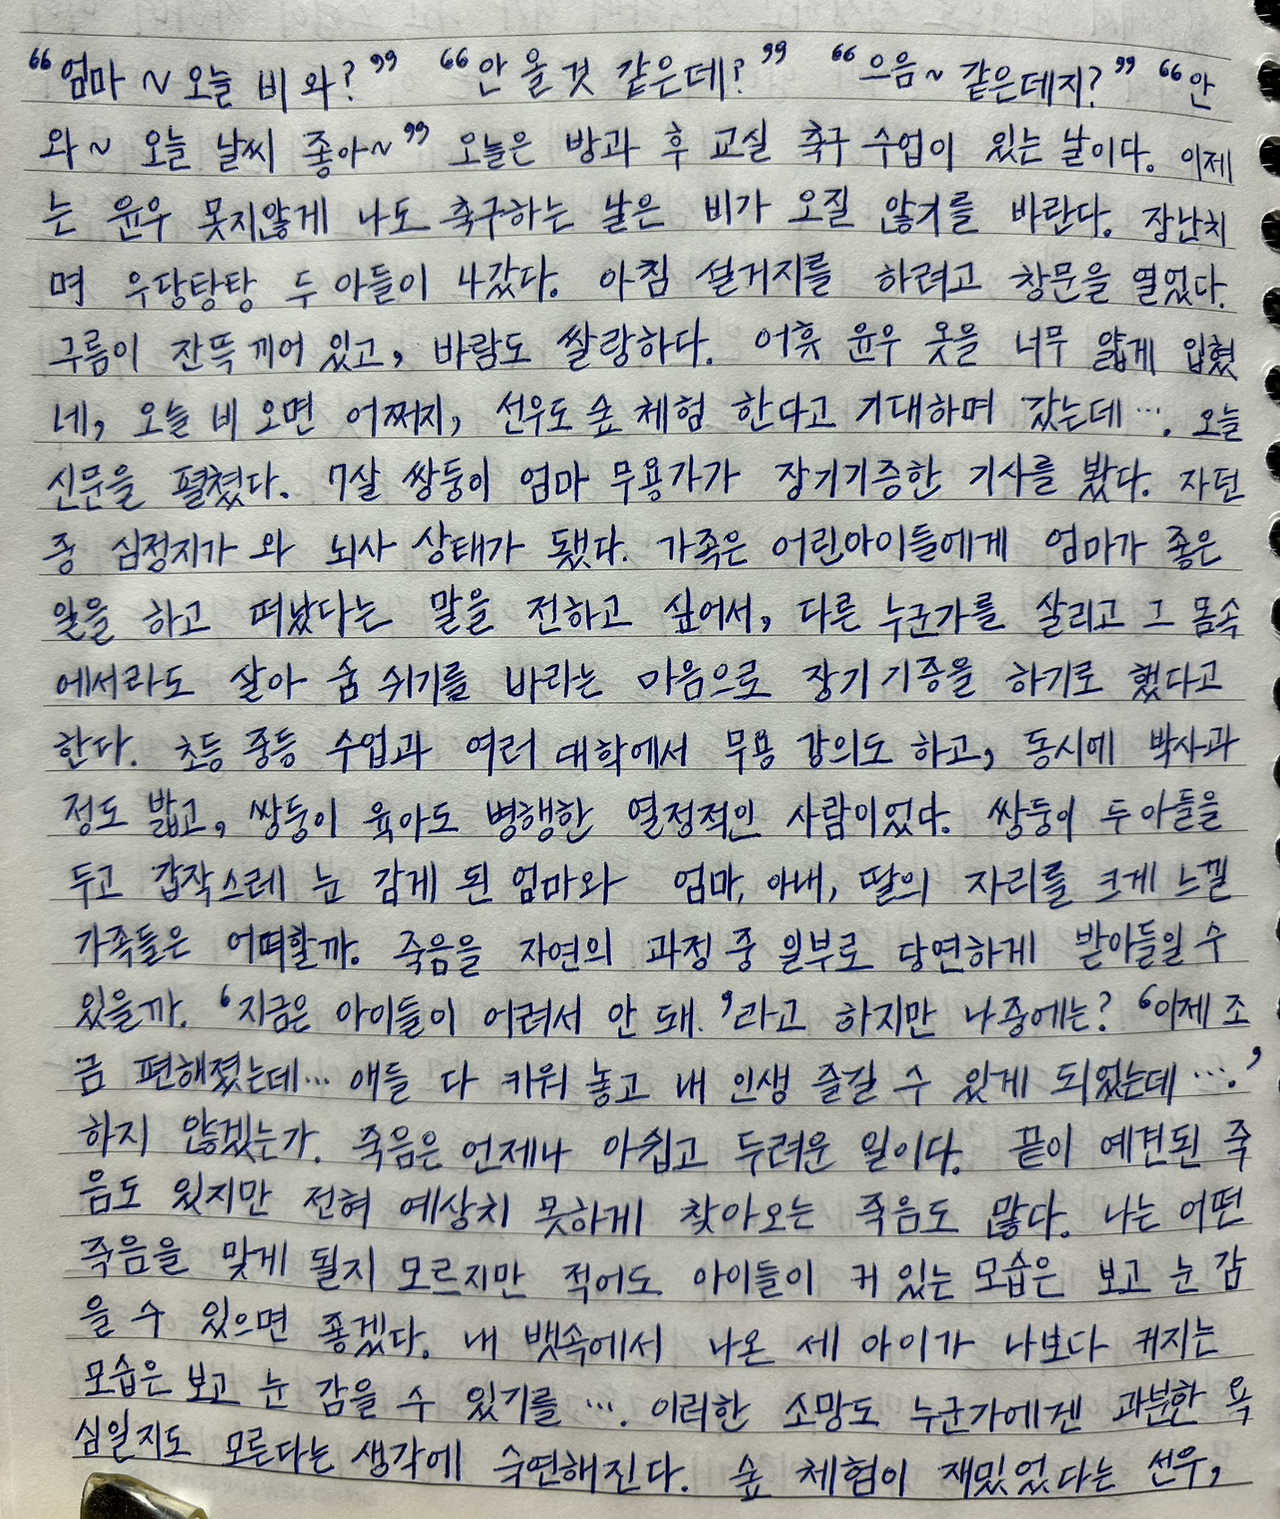 “엄마 ~ 오늘 비 와?” “안 올 것 같은데?” “으음~ 같은데지?” “안
와~ 오늘 날씨 좋아~” 오늘은 방과 후 교실 축구 수업이 있는 날이다. 이제
는 윤우 못지않게 나도 축구하는 날은 비가 오질 않기를 바란다. 장난치
며 우당탕탕 두 아들이 나갔다. 아침 설거지를 하려고 창문을 열었다.
구름이 잔뜩 끼어 있고, 바람도 쌀랑하다. 어휴 윤우 옷을 너무 얇게 입혔
네, 오늘 비 오면 어쩌지, 선우도 숲 체험 한다고 기대하며 갔는데…. 오늘
신문을 펼쳤다. 7살 쌍둥이 엄마 무용가가 장기기증한 기사를 봤다. 자던
중 심정지가 와 뇌사 상태가 됐다. 가족은 어린아이들에게 엄마가 좋은
일을 하고 떠났다는 말을 전하고 싶어서, 다른 누군가를 살리고 그 몸속
에서라도 살아 숨 쉬기를 바라는 마음으로 장기 기증을 하기로 했다고
한다. 초등 중등 수업과 여러 대학에서 무용 강의도 하고, 동시에 박사과
정도 밟고, 쌍둥이 육아도 병행한 열정적인 사람이었다. 쌍둥이 두 아들을
두고 갑작스레 눈 감게 된 엄마와 엄마, 아내, 딸의 자리를 크게 느낄
가족들은 어떠할까. 죽음을 자연의 과정 중 일부로 당연하게 받아들일 수
있을까. ‘지금은 아이들이 어려서 안 돼.’라고 하지만 나중에는? ‘이제 조
금 편해졌는데… 애들 다 키워 놓고 내 인생 즐길 수 있게 되었는데….’
하지 않겠는가. 죽음은 언제나 아쉽고 두려운 일이다. 끝이 예견된 죽
음도 있지만 전혀 예상치 못하게 찾아오는 죽음도 많다. 나는 어떤
죽음을 맞게 될지 모르지만 적어도 아이들이 커 있는 모습은 보고 눈 감
을 수 있으면 좋겠다. 내 뱃속에서 나온 세 아이가 나보다 커지는
모습은 보고 눈 감을 수 있기를 …. 이러한 소망도 누군가에겐 과분한 욕
심일지도 모른다는 생각에 숙연해진다. 숲 체험이 재밌었다는 선우,